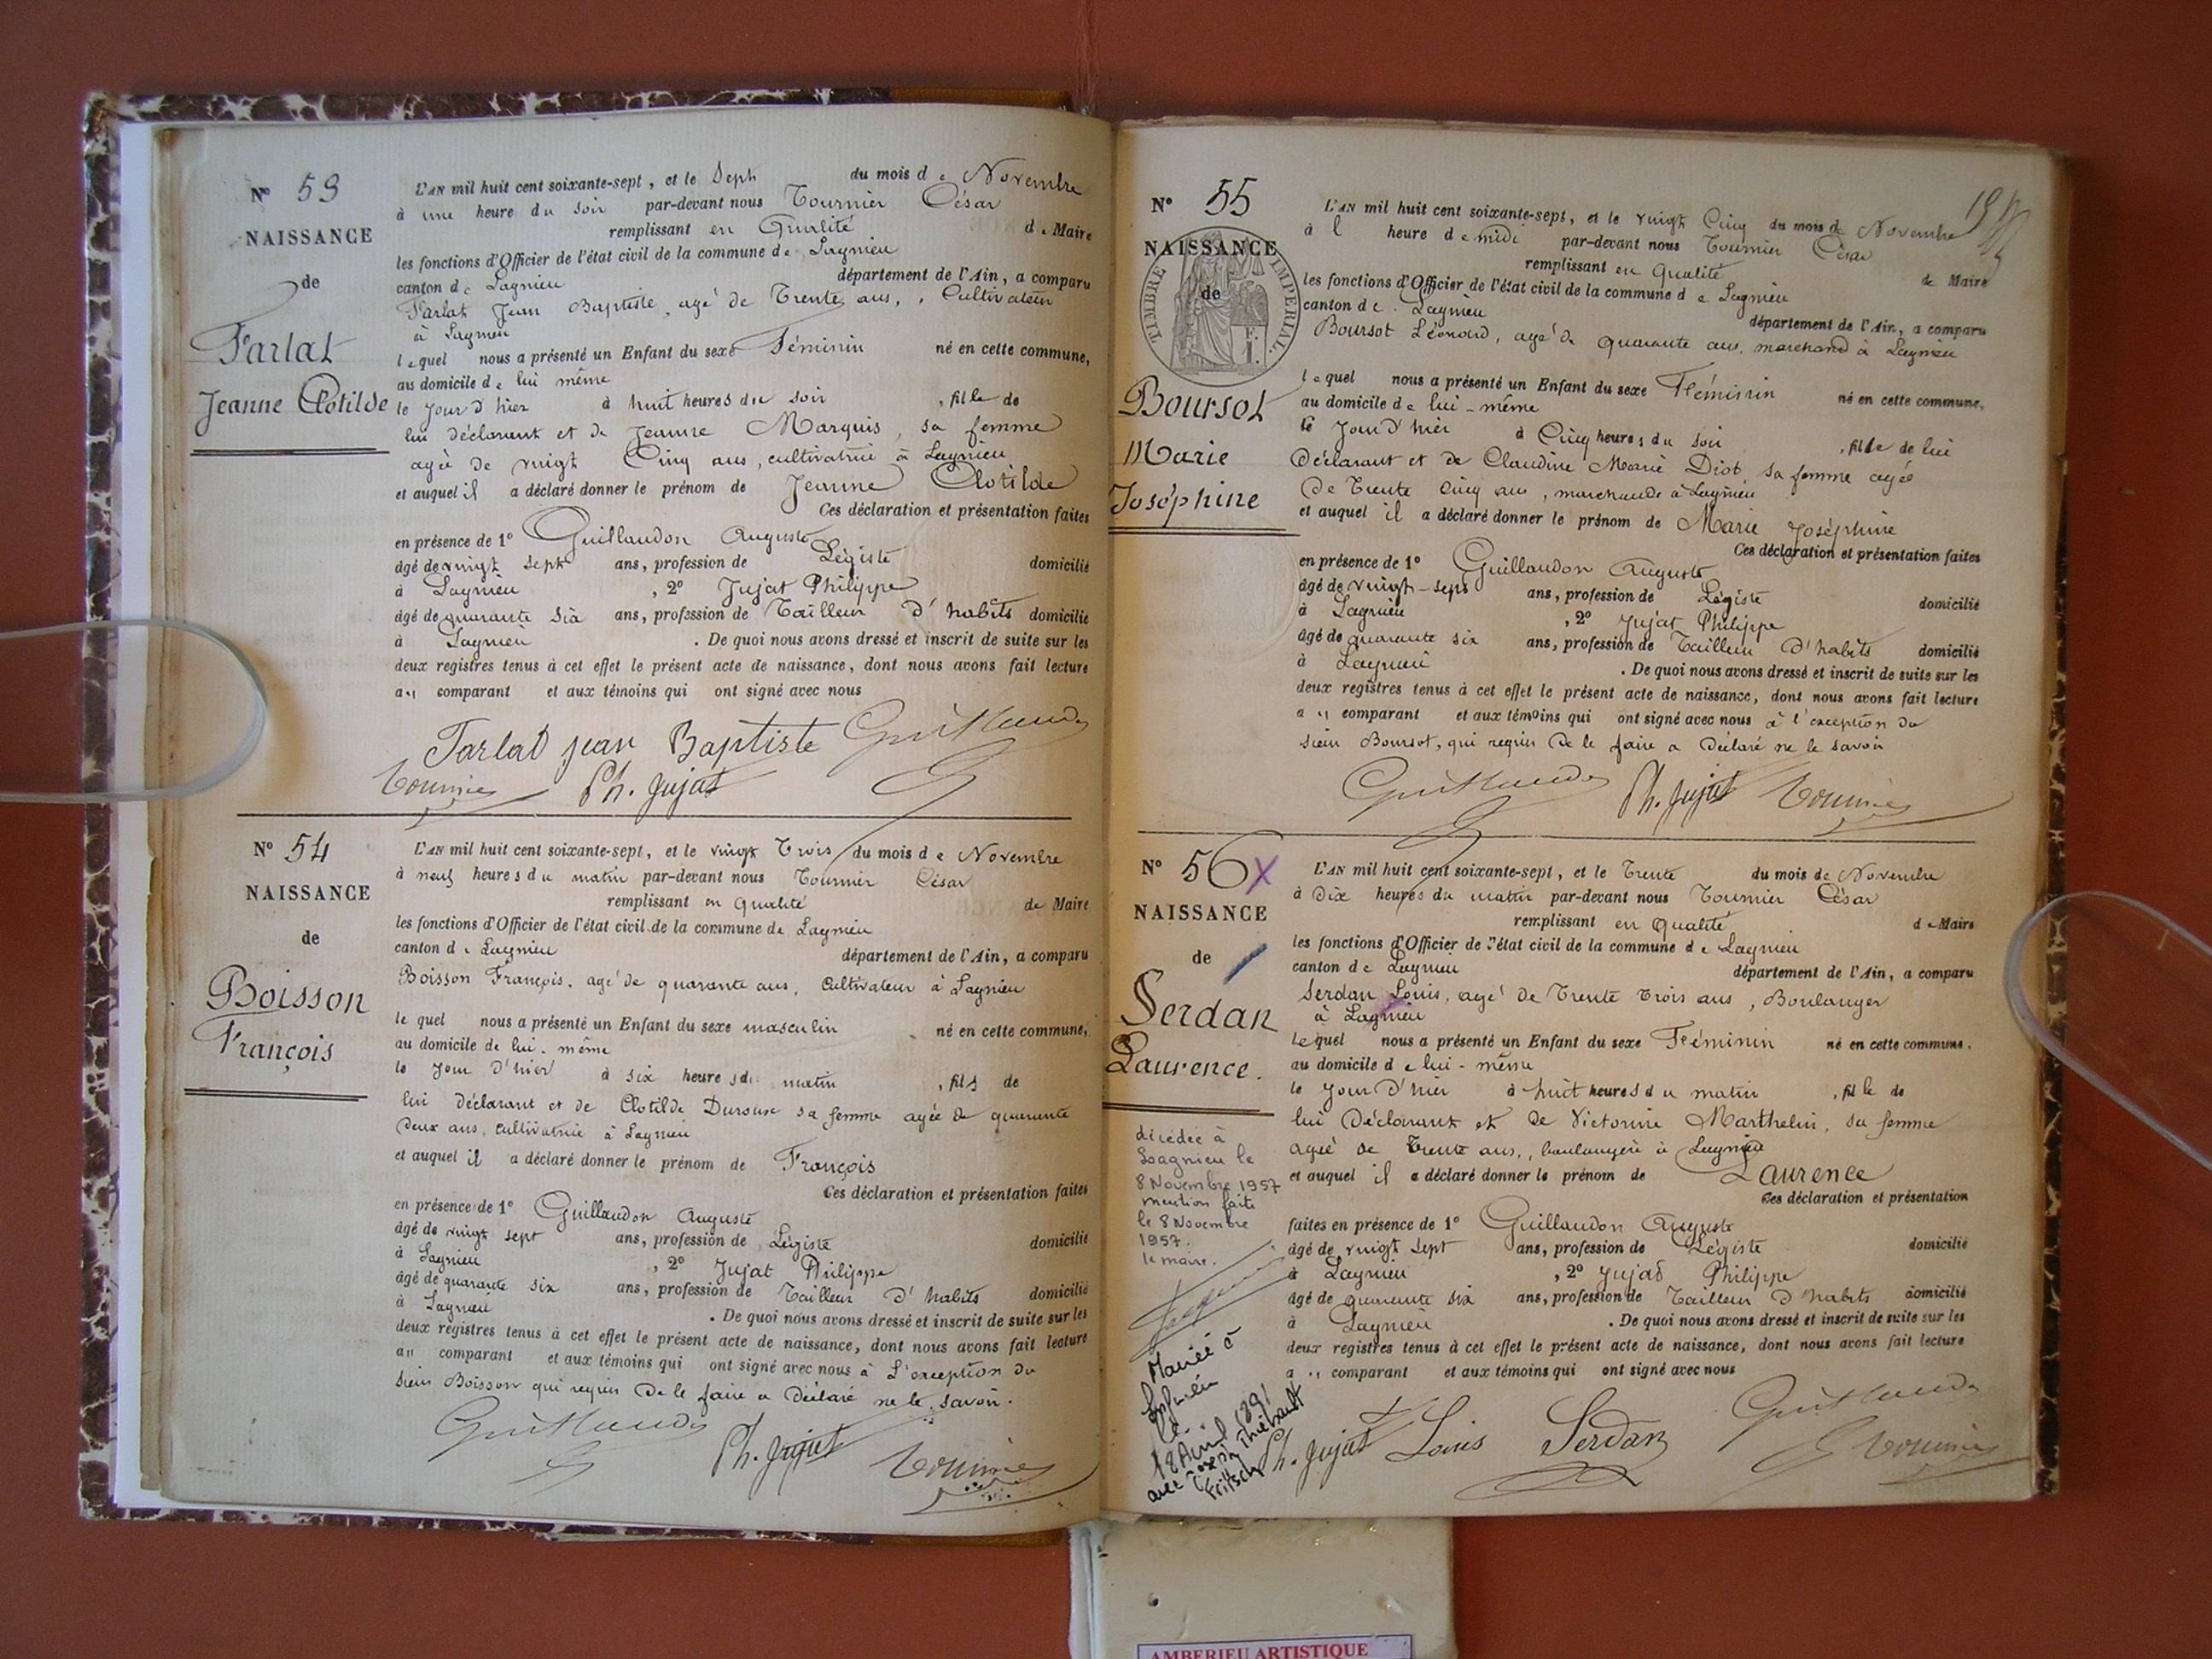 N° 53
NAISSANCE
de
Farlat
Jeanne Clotilde
L'AN mil huit cent soixante-sept, et le Sept du mois de Novembre
à une heure du soir par-devant nous Tournier César
remplissant en Qualité de Maire
les fonctions d'Officier de l'état civil de la commune de Lagnieu
canton de Lagnieu département de l'Ain, a comparu
Farlat Jean Baptiste, agé de Trente ans, Cultivateur
à Lagnieu
lequel nous a présenté un Enfant du sexe Féminin né en cette commune,
au domicile de lui même
le jour d'hier à huit heures du soir, fille de
lui déclarant et de Jeanne Marquis, sa femme
agée de vingt Cinq ans, cultivatrice à Lagnieu
et auquel il a déclaré donner le prénom de Jeanne Clotilde
Ces déclaration et présentation faites
en présence de 1° Guillaudon Auguste
âgé de vingt sept ans, profession de Légiste domicilié
à Lagnieu, 2° Jujat Philippe
âgé de quarante six ans, profession de Tailleur d'habits domicilié
à Lagnieu. De quoi nous avons dressé et inscrit de suite sur les
deux registres tenus à cet effet le présent acte de naissance, dont nous avons fait lecture
au comparant et aux témoins qui ont signé avec nous
Farlat jean Baptiste Guillaudon
Tournier Ph. Jujat
N° 54
NAISSANCE
de
Boisson
François
L'AN mil huit cent soixante-sept, et le vingt Trois du mois de Novembre
à neuf heures du matin par-devant nous Tournier César
remplissant en Qualité de Maire
les fonctions d'Officier de l'état civil de la commune de Lagnieu
canton de Lagnieu département de l'Ain, a comparu
Boisson François, agé de quarante ans, Cultivateur à Lagnieu
lequel nous a présenté un Enfant du sexe masculin né en cette commune,
au domicile de lui-même
le jour d'hier à six heures du matin, fils de
lui déclarant et de Clotilde Duroux sa femme agée de quarante
deux ans, cultivatrice à Lagnieu
et auquel il a déclaré donner le prénom de François
Ces déclaration et présentation faites
en présence de 1° Guillaudon Auguste
âgé de vingt sept ans, profession de Légiste domicilié
à Lagnieu, 2° Jujat Philippe
âgé de quarante six ans, profession de Tailleur d'habits domicilié
à Lagnieu. De quoi nous avons dressé et inscrit de suite sur les
deux registres tenus à cet effet le présent acte de naissance, dont nous avons fait lecture
au comparant et aux témoins qui ont signé avec nous à L'exception du
sieur Boisson qui requis de le faire a déclaré ne le savoir.
Guillaudon Ph. Jujat Tournier
N° 55
NAISSANCE
de
TIMBRE IMPERIAL
Boursot
Marie
Joséphine
L'AN mil huit cent soixante-sept, et le vingt Cinq du mois de Novembre
à 1 heure de midi par-devant nous Tournier César
remplissant en Qualité de Maire
les fonctions d'Officier de l'état civil de la commune de Lagnieu
canton de Lagnieu département de l'Ain, a comparu
Boursot Léonard, agé de quarante ans, marchand à Lagnieu
lequel nous a présenté un Enfant du sexe Féminin né en cette commune,
au domicile de lui-même
le jour d'hier à Cinq heures du soir, fille de lui
déclarant et de Claudine Marie Diot sa femme agée
de Trente Cinq ans, marchande à Lagnieu
et auquel il a déclaré donner le prénom de Marie Joséphine
Ces déclaration et présentation faites
en présence de 1° Guillaudon Auguste
âgé de vingt-sept ans, profession de Légiste domicilié
à Lagnieu, 2° Jujat Philippe
âgé de quarante six ans, profession de Tailleur d'habits domicilié
à Lagnieu. De quoi nous avons dressé et inscrit de suite sur les
deux registres tenus à cet effet le présent acte de naissance, dont nous avons fait lecture
au comparant et aux témoins qui ont signé avec nous à l'exception du
sieur Boursot, qui requis de le faire a déclaré ne le savoir
Guillaudon Ph. Jujat Tournier
N° 56 X
NAISSANCE
de
Serdan
Laurence.
décédée à
Lagnieu le
8 Novembre 1957
mention faite
le 8 Novembre
1957.
le maire.
Mariée à
Lagnieu
le
18 Avril 1891
avec Joseph Thiébault
Fritsch
L'AN mil huit cent soixante-sept, et le Trente du mois de Novembre
à Dix heures du matin par-devant nous Tournier César
remplissant en Qualité de Maire
les fonctions d'Officier de l'état civil de la commune de Lagnieu
canton de Lagnieu département de l'Ain, a comparu
Serdan Louis, agé de Trente Trois ans, Boulanger
à Lagnieu
Lequel nous a présenté un Enfant du sexe Féminin né en cette commune.
au domicile de lui-même
le jour d'hier à huit heures du matin, fille de
lui déclarant et de Victorine Marthelin, sa femme
agée de Trente ans, boulangère à Lagnieu
et auquel il a déclaré donner le prénom de Laurence
Ces déclaration et présentation
faites en présence de 1° Guillaudon Auguste
âgé de vingt sept ans, profession de Légiste domicilié
à Lagnieu, 2° Jujat Philippe
âgé de quarante six ans, profession de Tailleur d'habits domicilié
à Lagnieu. De quoi nous avons dressé et inscrit de suite sur les
deux registres tenus à cet effet le présent acte de naissance, dont nous avons fait lecture
au comparant et aux témoins qui ont signé avec nous
Ph. Jujat Louis Serdan Guillaudon
Tournier
AMBERIEU ARTISTIQUE